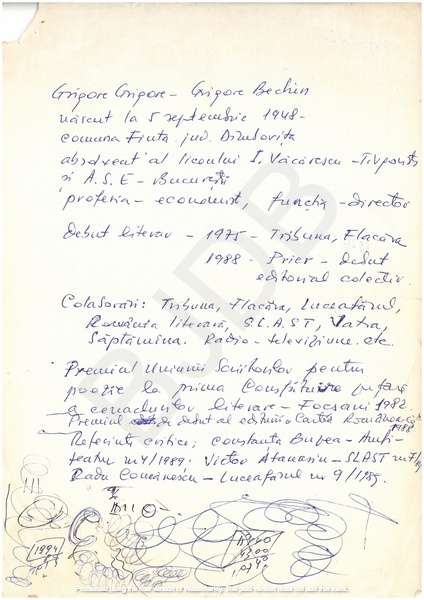 Grigore Grigore - Grigore Bechin
născut la 5 septembrie 1948 -
comuna Finta jud. Dîmbovița
absolvent al liceului I. Văcărescu - Tîrgoviște
și A.S.E - București
profesia - economist, funcția - director
Debut literar - 1975 - Tribuna, Flacăra
1988 - Prier - debut
editorial colectiv.
Colaborări: Tribuna, Flacăra, Luceafărul,
România literară, S.L.A.S.T, Vatra,
Săptămîna. Radio - televiziune. etc.
Premiul Uniunii Scriitorilor pentru
poezie la prima Consfătuire pe țară
a cenaclurilor literare - Focșani 1982
Premiul de debut al editurii Cartea Românească
1988
Referințe critice; Constanța Buzea - Amfi-
teatru nr 4/1989. Victor Atanasiu - SLAST
Radu Comănescu - Luceafărul nr 9/1989.
BJDB